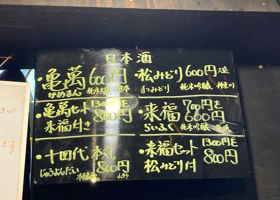 日本酒
・亀萬 600円
かめまん
・松みどり 600円
まつみどり 純米吟醸
亀萬セット 1300円を
来福付き 800円
・来福 700円を
らいふく 600円
純米吟醸
・十四代 本丸
じゅうよんだい 800円
・来福セット 1300円を
松みどり付 800円